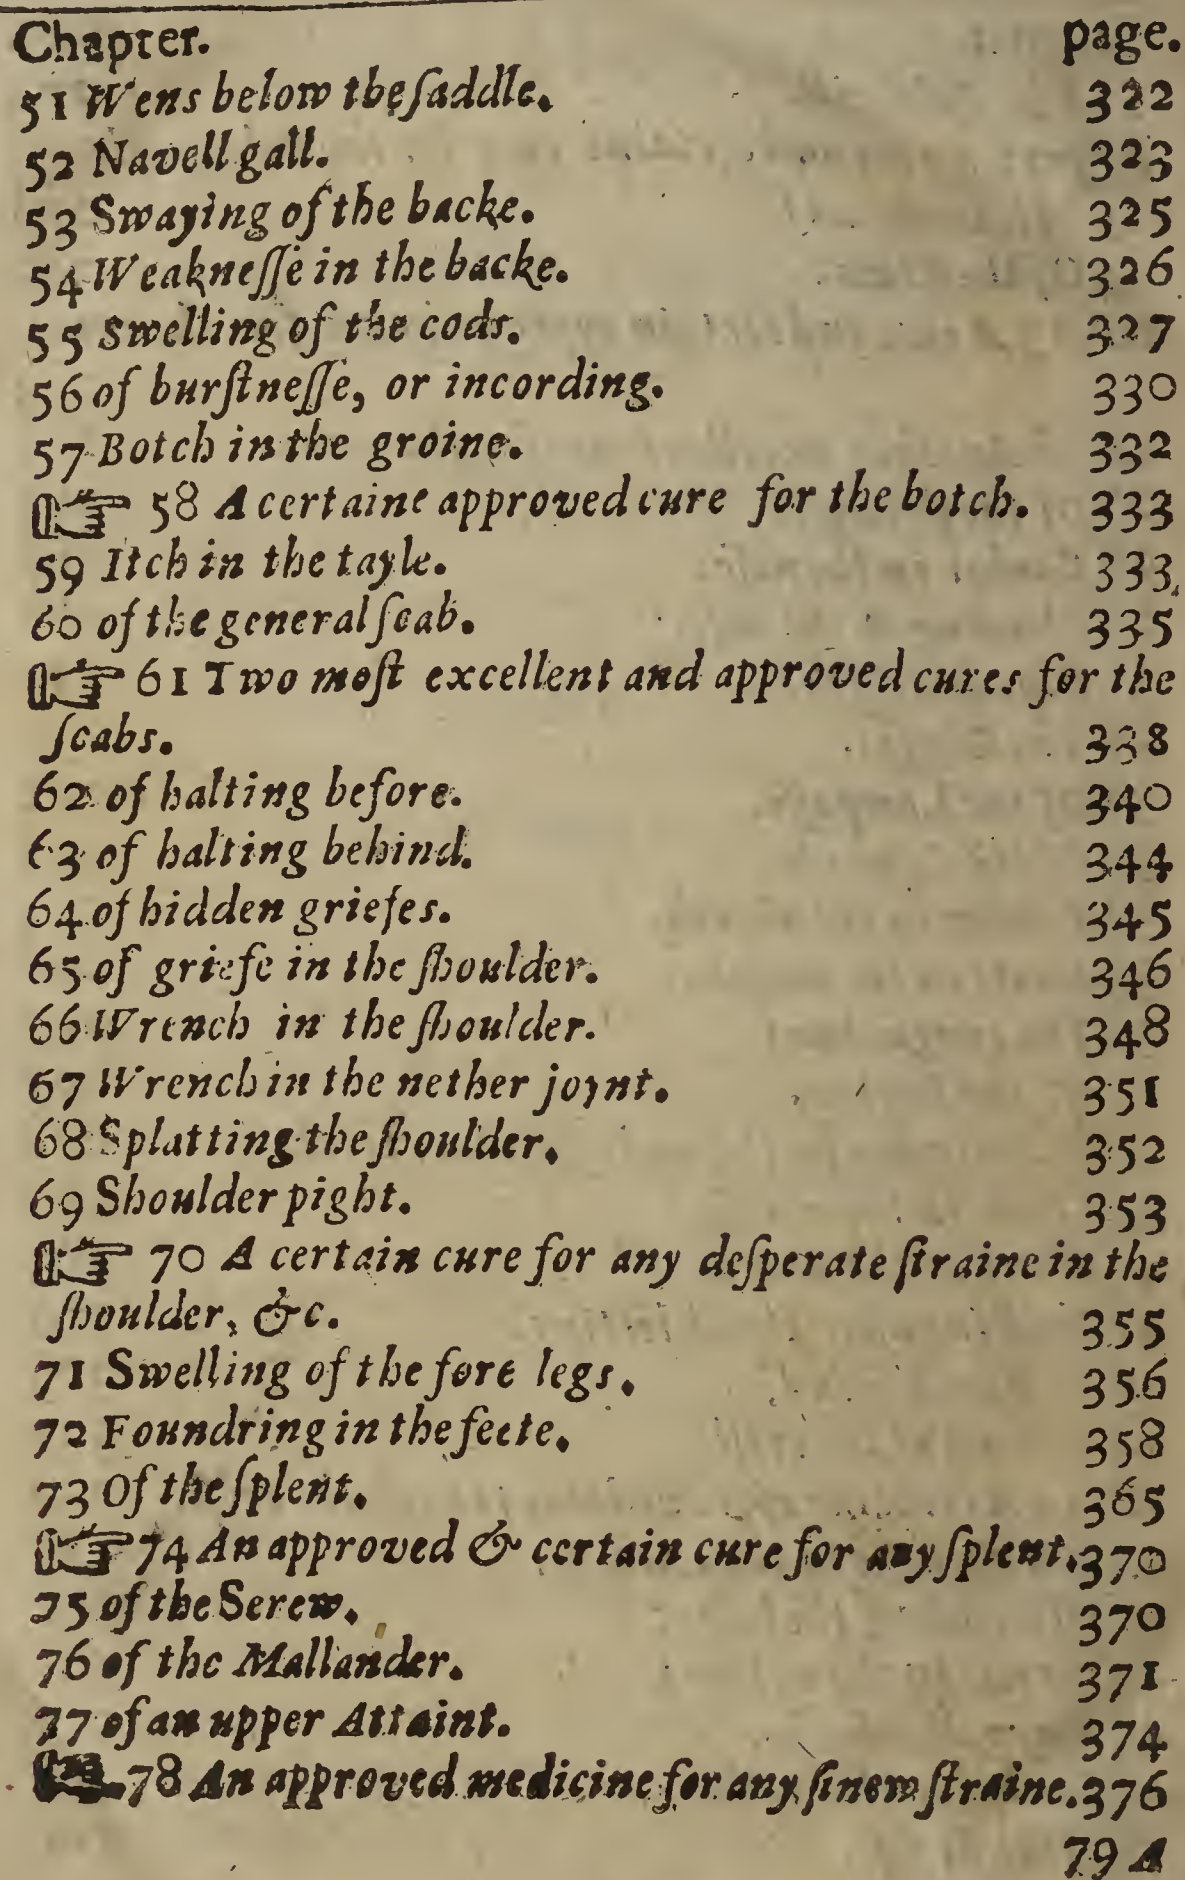 Chapter. page.
51 Wens below the ſaddle. 322
52 Navell gall. 323
53 Swaying of the backe. 325
54 Weakneſſe in the backe. 326
55 Swelling of the cods. 327
56 of burſtneſſe, or incording. 330
57 Botch in the groine. 332
☞ 58 A certaine approved cure for the botch. 333
59 Itch in the tayle. 333
60 of the general ſcab. 335
☞ 61 Two moſt excellent and approved cures for the
ſcabs. 338
62 of halting before. 340
63 of halting behind. 344
64 of hidden griefes. 345
65 of griefe in the ſhoulder. 346
66 Wrench in the ſhoulder. 348
67 Wrench in the nether joynt. 351
68 Splatting the ſhoulder. 352
69 Shoulder pight. 353
☞ 70 A certain cure for any deſperate ſtraine in the
ſhoulder, &c. 355
71 Swelling of the fore legs. 356
72 Foundring in the feete. 358
73 Of the ſplent. 365
☞ 74 An approved & certain cure for any ſplent. 370
75 of the Serew. 370
76 of the Mallander. 371
77 of an upper Attaint. 374
☞ 78 An approved medicine for any ſinew ſtraine. 376
79 A